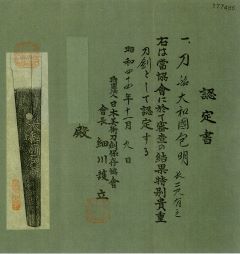 認定書
一、刀 銘 大和國包明 長二尺
右は當協會に於て審査の結果特別貴重
刀剣として認定する
昭和四十四年十一月九日
財團法人日本美術刀剣保存協會
會長 細川護立
殿